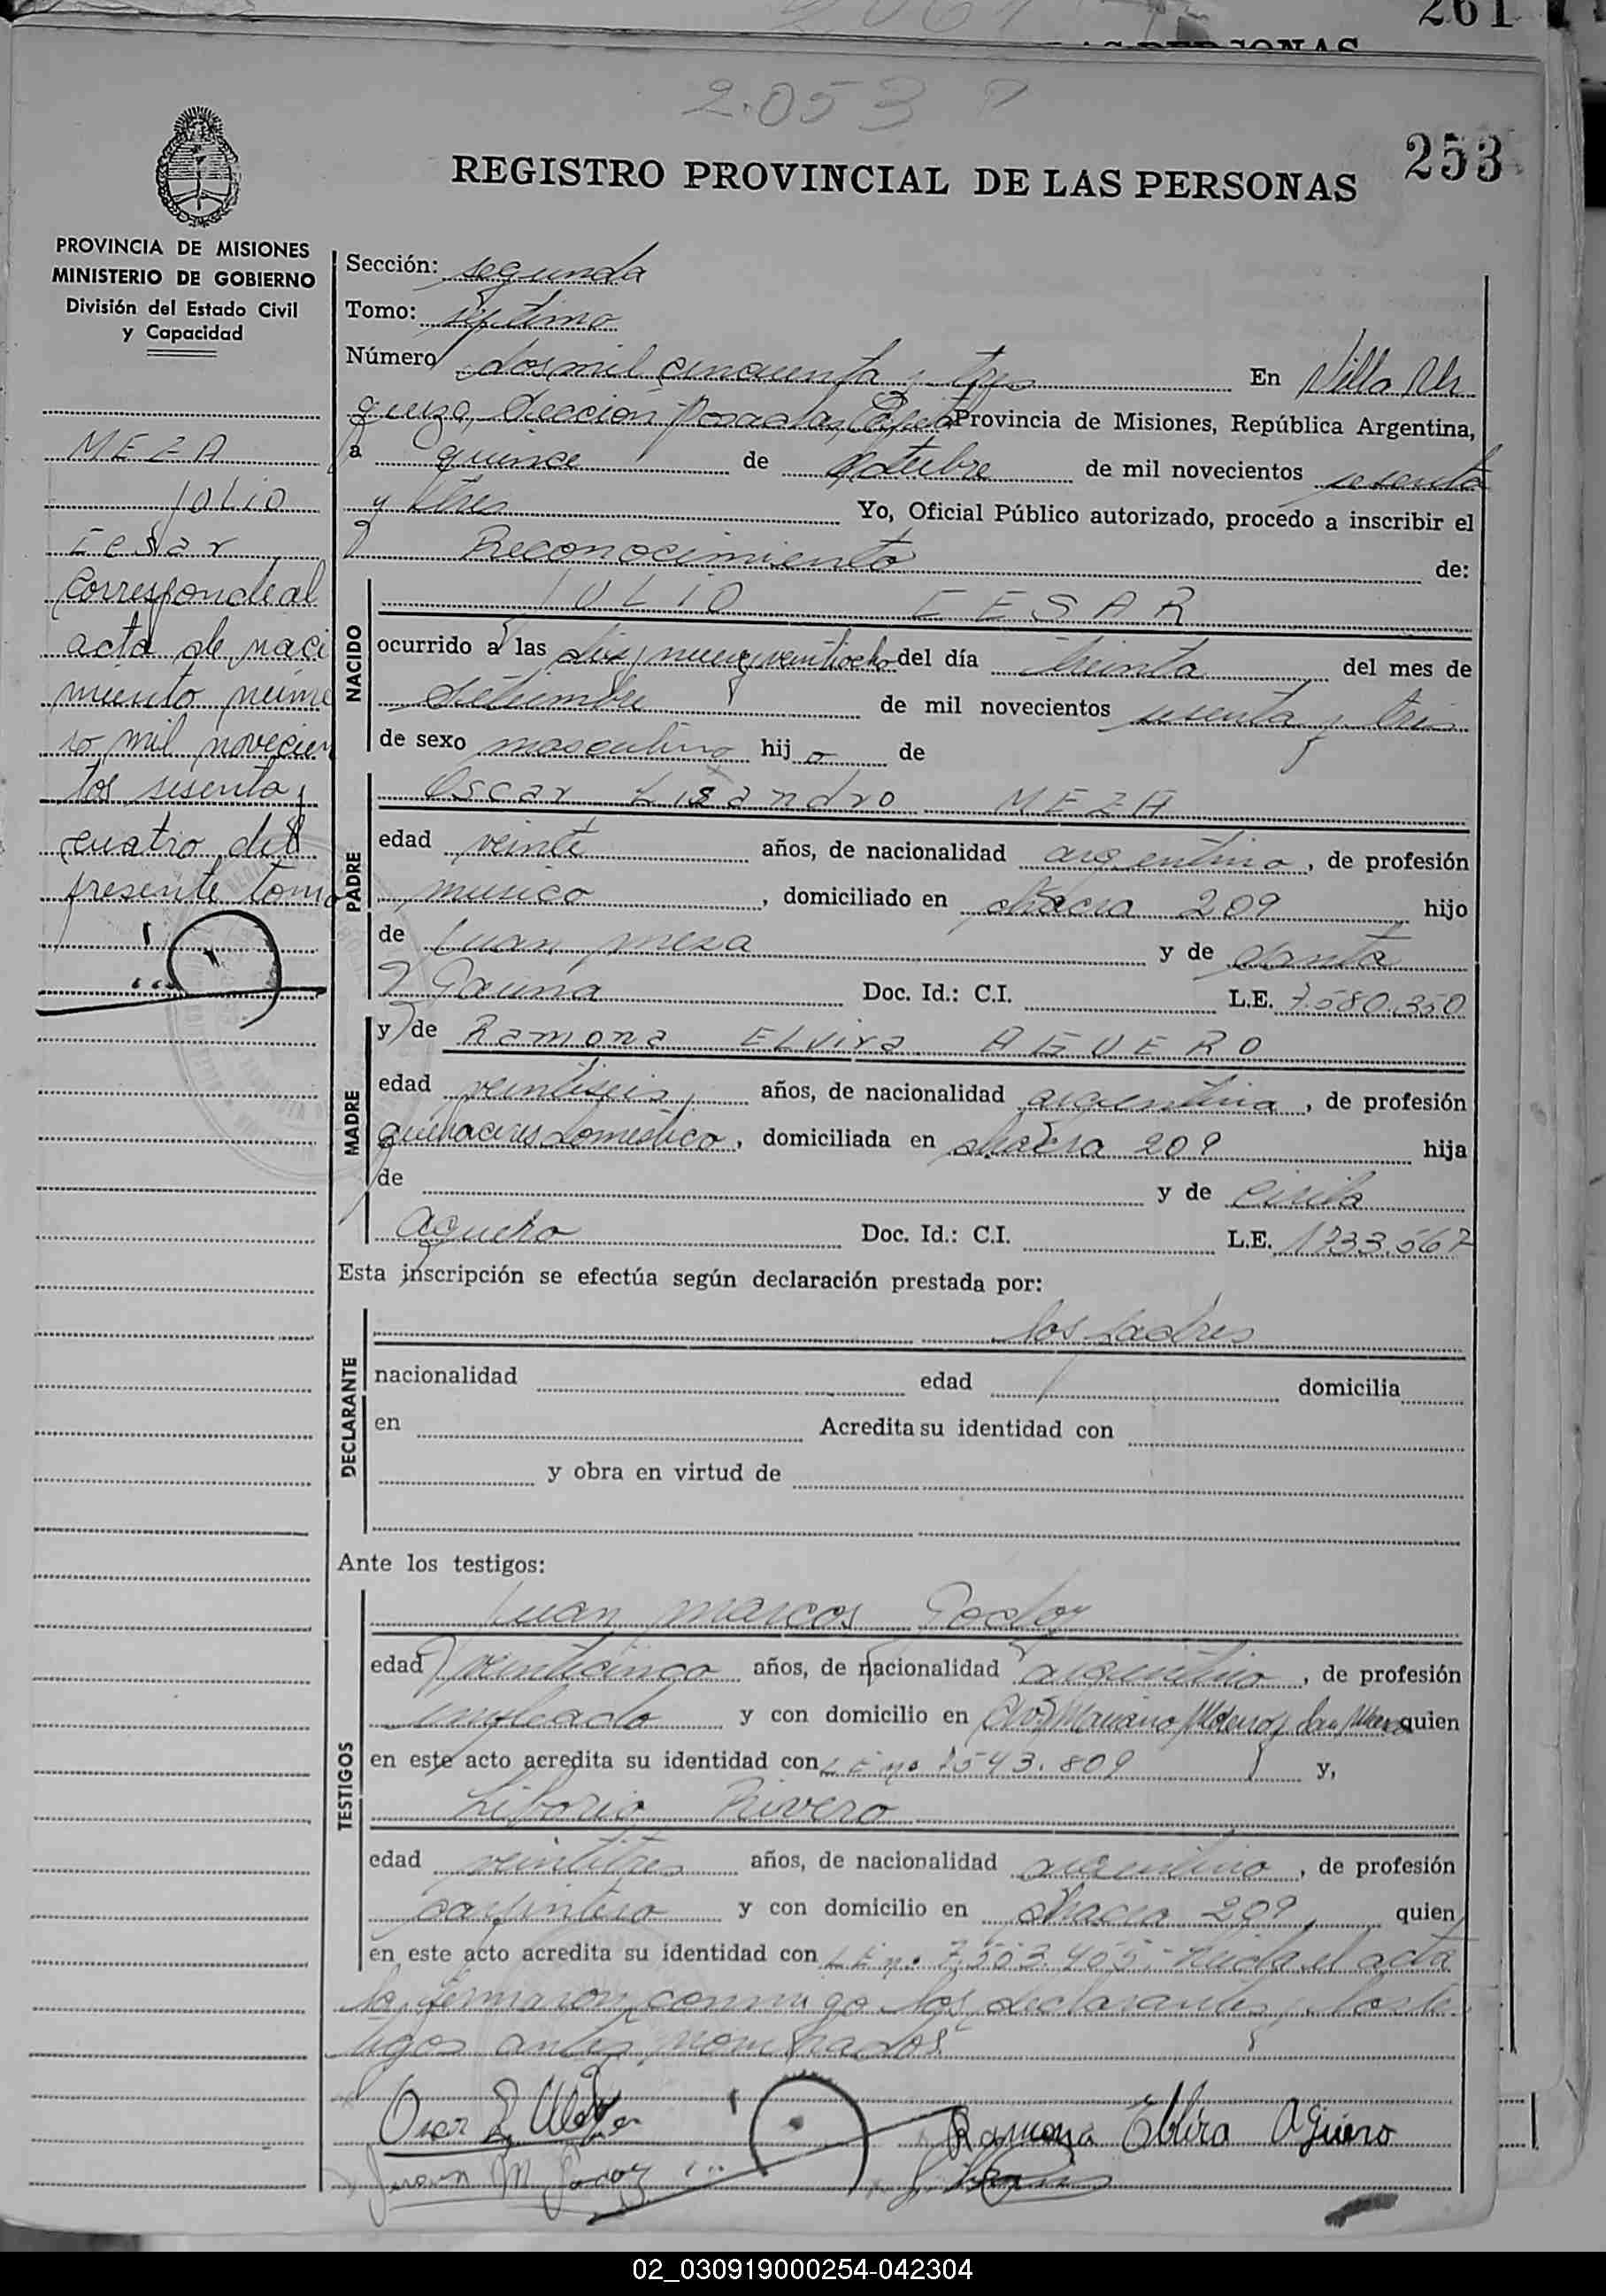 261
2.053
253
REGISTRO PROVINCIAL DE LAS PERSONAS
PROVINCIA DE MISIONES
MINISTERIO DE GOBIERNO
División del Estado Civil
y Capacidad
MEZA
JULIO
Cesar
Corresponde al
acta de naci
miento núme
ro mil novecien
tos sesenta y
cuatro del
presente tomo
Sección: segunda
Tomo: septimo
Número dos mil cincuenta y tres En Villa
Sección Posadas, Provincia de Misiones, República Argentina,
a quince de octubre de mil novecientos sesenta
y tres Yo, Oficial Público autorizado, procedo a inscribir el
Reconocimiento de:
NACIDO
JULIO CESAR
ocurrido a las diez y nueve y veintiocho del día treinta del mes de
setiembre de mil novecientos sesenta y tres
de sexo masculino hijo de
PADRE
Oscar Lisandro MEZA
edad veinte años, de nacionalidad argentino, de profesión
musico, domiciliado en chacra 209 hijo
de Juan meza y de Santa
Gauna Doc. Id.: C.I. L.E. 7.580.350
MADRE
y de Ramona ELvira AGUERO
edad veintiseis años, de nacionalidad argentina, de profesión
quehaceres domestico, domiciliada en chacra 209 hija
de y de Cirila
Aguero Doc. Id.: C.I. L.E. 1733.567
Esta inscripción se efectúa según declaración prestada por:
DECLARANTE
los padres
nacionalidad edad domicilia
en Acredita su identidad con
y obra en virtud de
Ante los testigos:
TESTIGOS
Juan marcos Godoy
edad veinticinco años, de nacionalidad argentino, de profesión
empleado y con domicilio en Mariano Moreno quien
en este acto acredita su identidad con L E no 7543.809 y,
Liborio Rivero
edad veintitres años, de nacionalidad argentino, de profesión
carpintero y con domicilio en chacra 209, quien
en este acto acredita su identidad con L E no 7.503.405 - leida el acta
la firmaron conmigo los declarantes y los tes
tigos antes nombrados
Oscar L Meza
Ramona Elvira Aguero
Juan M Godoy
02_030919000254-042304